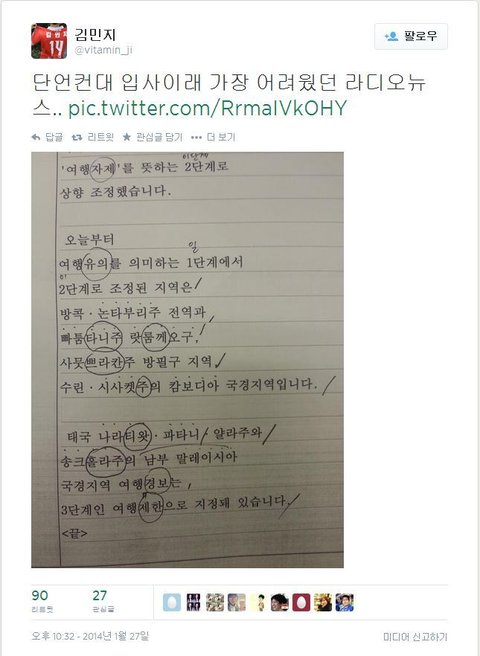 김민지
@vitamin_ji
팔로우
단언컨대 입사이래 가장 어려웠던 라디오뉴
스.. pic.twitter.com/RrmaIVkOHY
답글 리트윗 관심글 담기 더 보기
이단계
'여행자제'를 뜻하는 2단계로
상향 조정했습니다.
오늘부터
일
여행유의를 의미하는 1단계에서
이
2단계로 조정된 지역은
방콕·논타부리주 전역과,
빠툼타니주 랏룸깨오구,
사뭇쁘라칸주 방필구 지역,
수린·시사켓주의 캄보디아 국경지역입니다.
태국 나라티왓·파타니·얄라주와
송크홀라주의 남부 말레이시아
국경지역 여행경보는,
3단계인 여행제한으로 지정돼 있습니다.
<끝>
90 27
리트윗 관심글
오후 10:32 - 2014년 1월 27일
미디어 신고하기